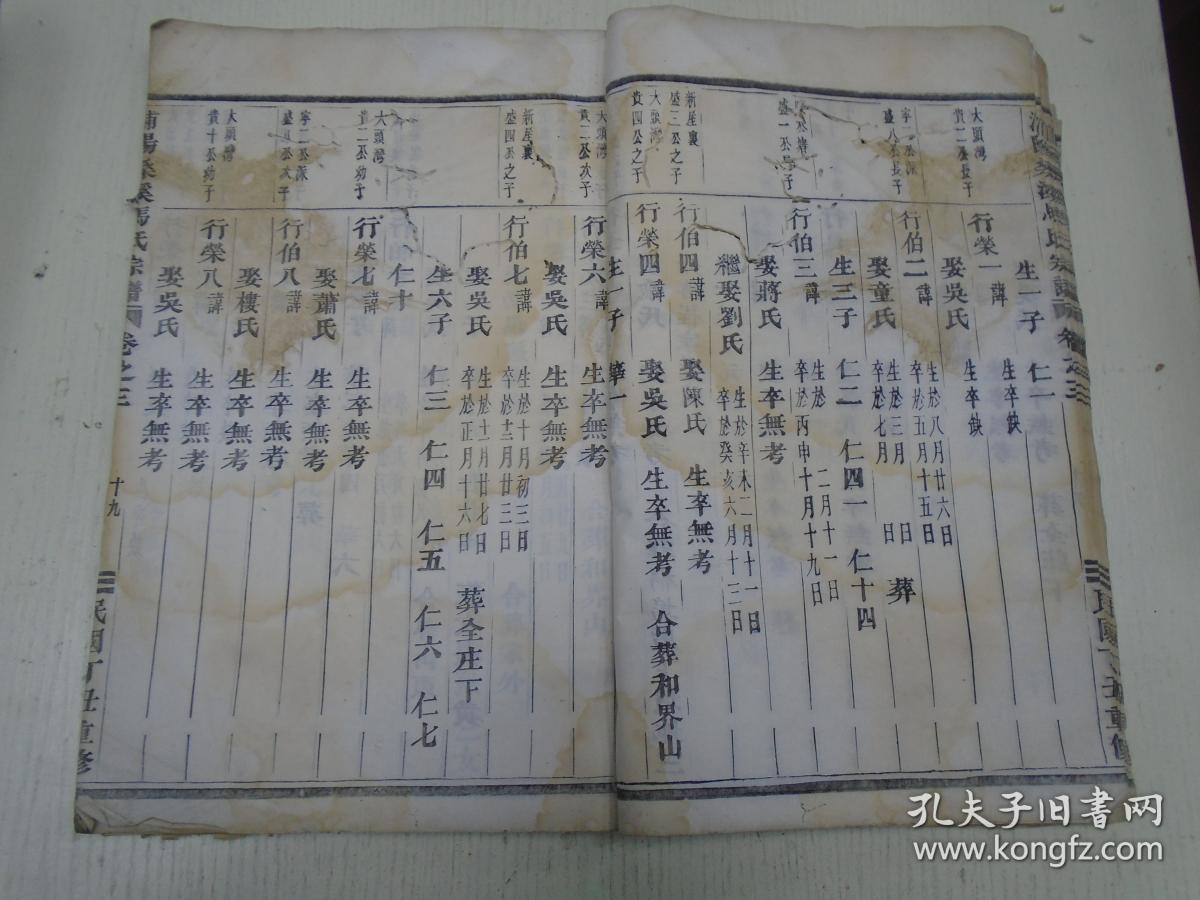 生一子 仁一
大頭灣
貴二公長子
行榮一 諱 生卒缺
生卒缺
娶吳氏
寧二公派
盛八公長子
行伯二 諱 生於八月廿六日
卒於五月十五日
娶童氏 生於三月 日
卒於七月 日 葬
生三子 仁二 仁四一 仁十四
盛一公長子
行伯三 諱 生於 二月十一日
卒於丙申十月十九日
娶蔣氏 生卒無考
繼娶劉氏 生於辛未二月十一日
卒於癸亥六月十三日
新屋裏
盛三公之子
行伯四 諱 娶陳氏 生卒無考
大頭灣
貴四公之子
行榮四 諱 娶吳氏 生卒無考 合葬和界山
生一子 華一
大頭灣
貴二公次子
行榮六 諱 生卒無考
娶吳氏 生卒無考
新屋裏
盛四公之子
行伯七 諱 生於十月初三日
卒於十二月廿三日
娶吳氏 生於十二月廿七日
卒於正月十六日 葬全庄下
生六子 仁三 仁四 仁五 仁六 仁七
仁十
大頭灣
貴二公幼子
行榮七 諱 生卒無考
娶蕭氏 生卒無考
寧二公派
盛八公次子
行伯八 諱 生卒無考
娶樓氏 生卒無考
大頭灣
貴十公幼子
行榮八 諱 生卒無考
娶吳氏 生卒無考
十九
浦陽 馬氏宗譜 卷之三
民國丁丑重修
孔夫子旧书网
www.kongfz.com